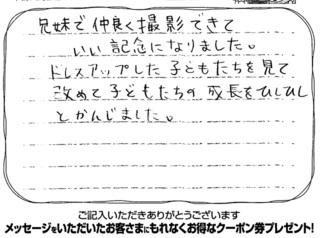 兄妹で仲良く撮影できて
いい記念になりました。
ドレスアップした子どもたちを見て
改めて子どもたちの成長をひしひし
とかんじました。
ご記入いただきありがとうございます
メッセージをいただいたお客さまにもれなくお得なクーポン券プレゼント!